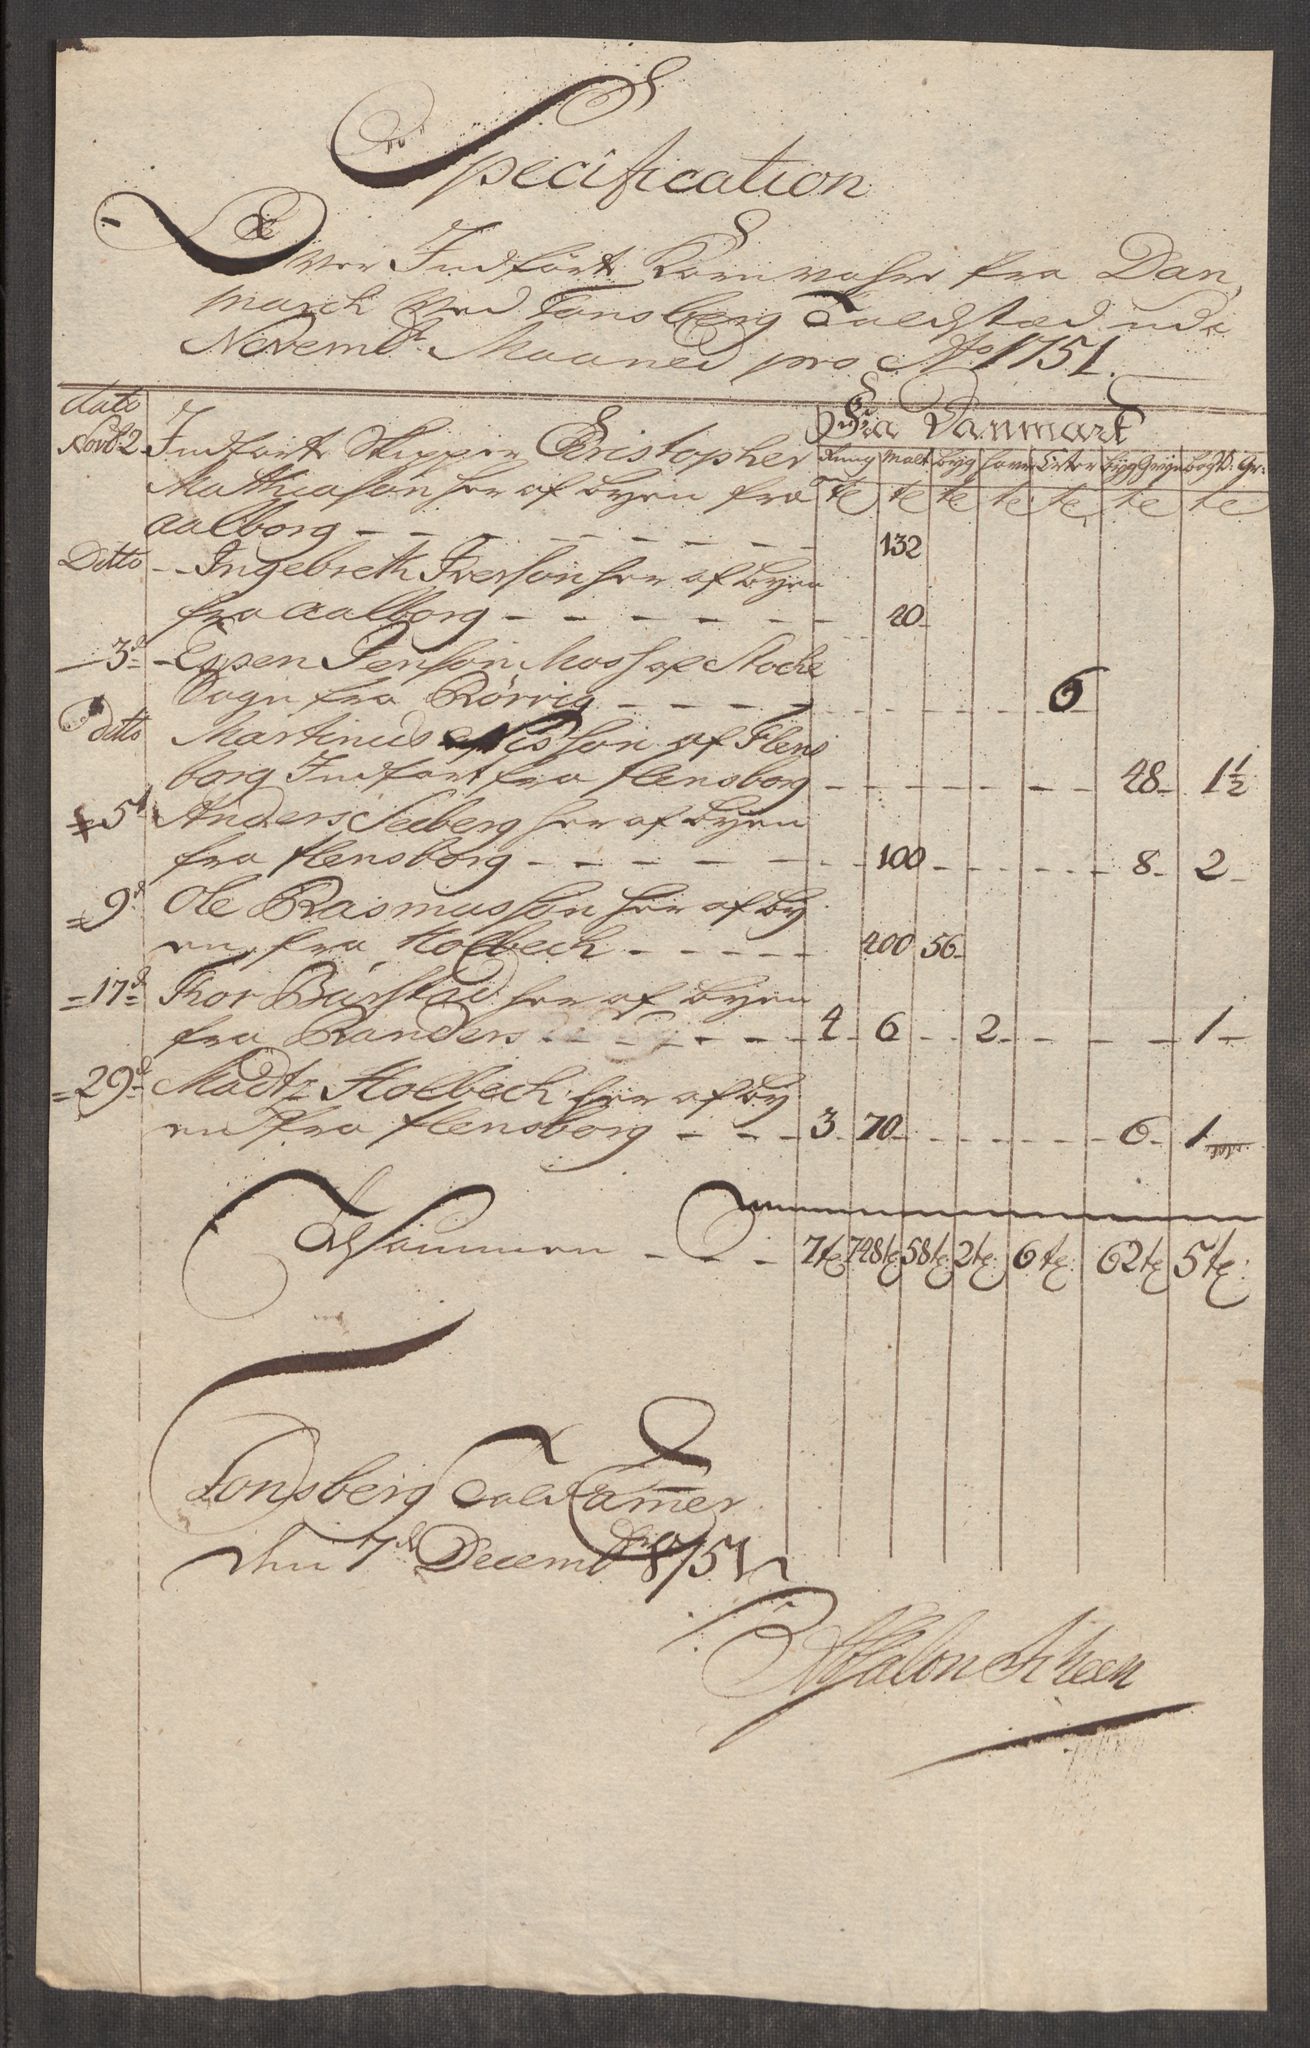 Specification
Over Indført Korn vahre fra Dan,
march ved Tønsberg Toldsted udi
Novembr. Maaned pro Ao 1751.
dato
Fra Danmark
Rug Malt byg havr Erter bÿg Gryn bogh: Gr:
te te te te te te te
Novb 2 Indført Skipper Christopher
Mathiasøn her af byen fra
aalborg - - - - 132
Ditto - Ingebreth Iversøn her af byen
fra aalborg - - - - 40
3d Espen Jensøn Moss af Stoche
Sogn fra Rörvig - - - - 6
ditto Martinus Nissøn af Flens
borg Indført fra flensborg - - - 48 - 1½
5d Anders Seeberg her af byen
fra flensborg - - - 100 - - - 8 - 2 -
= 9d Ole Rasmussøn her af by
en, fra Holbech - - - 400 56 -
= 17d Thor Bustad her af byen
fra Randers - - - 4 6 - 2 - - 1 -
= 29d Madtz Holbech her af by
en fra flensborg - - - 3 70 - - - 6 - 1
Tilsammen - - - 7 te 748 te 58 te 2 te: 6 te: 62 te 5 te:
Tonsberg Told Cammer
den 7de Decembr 1751
Absalon